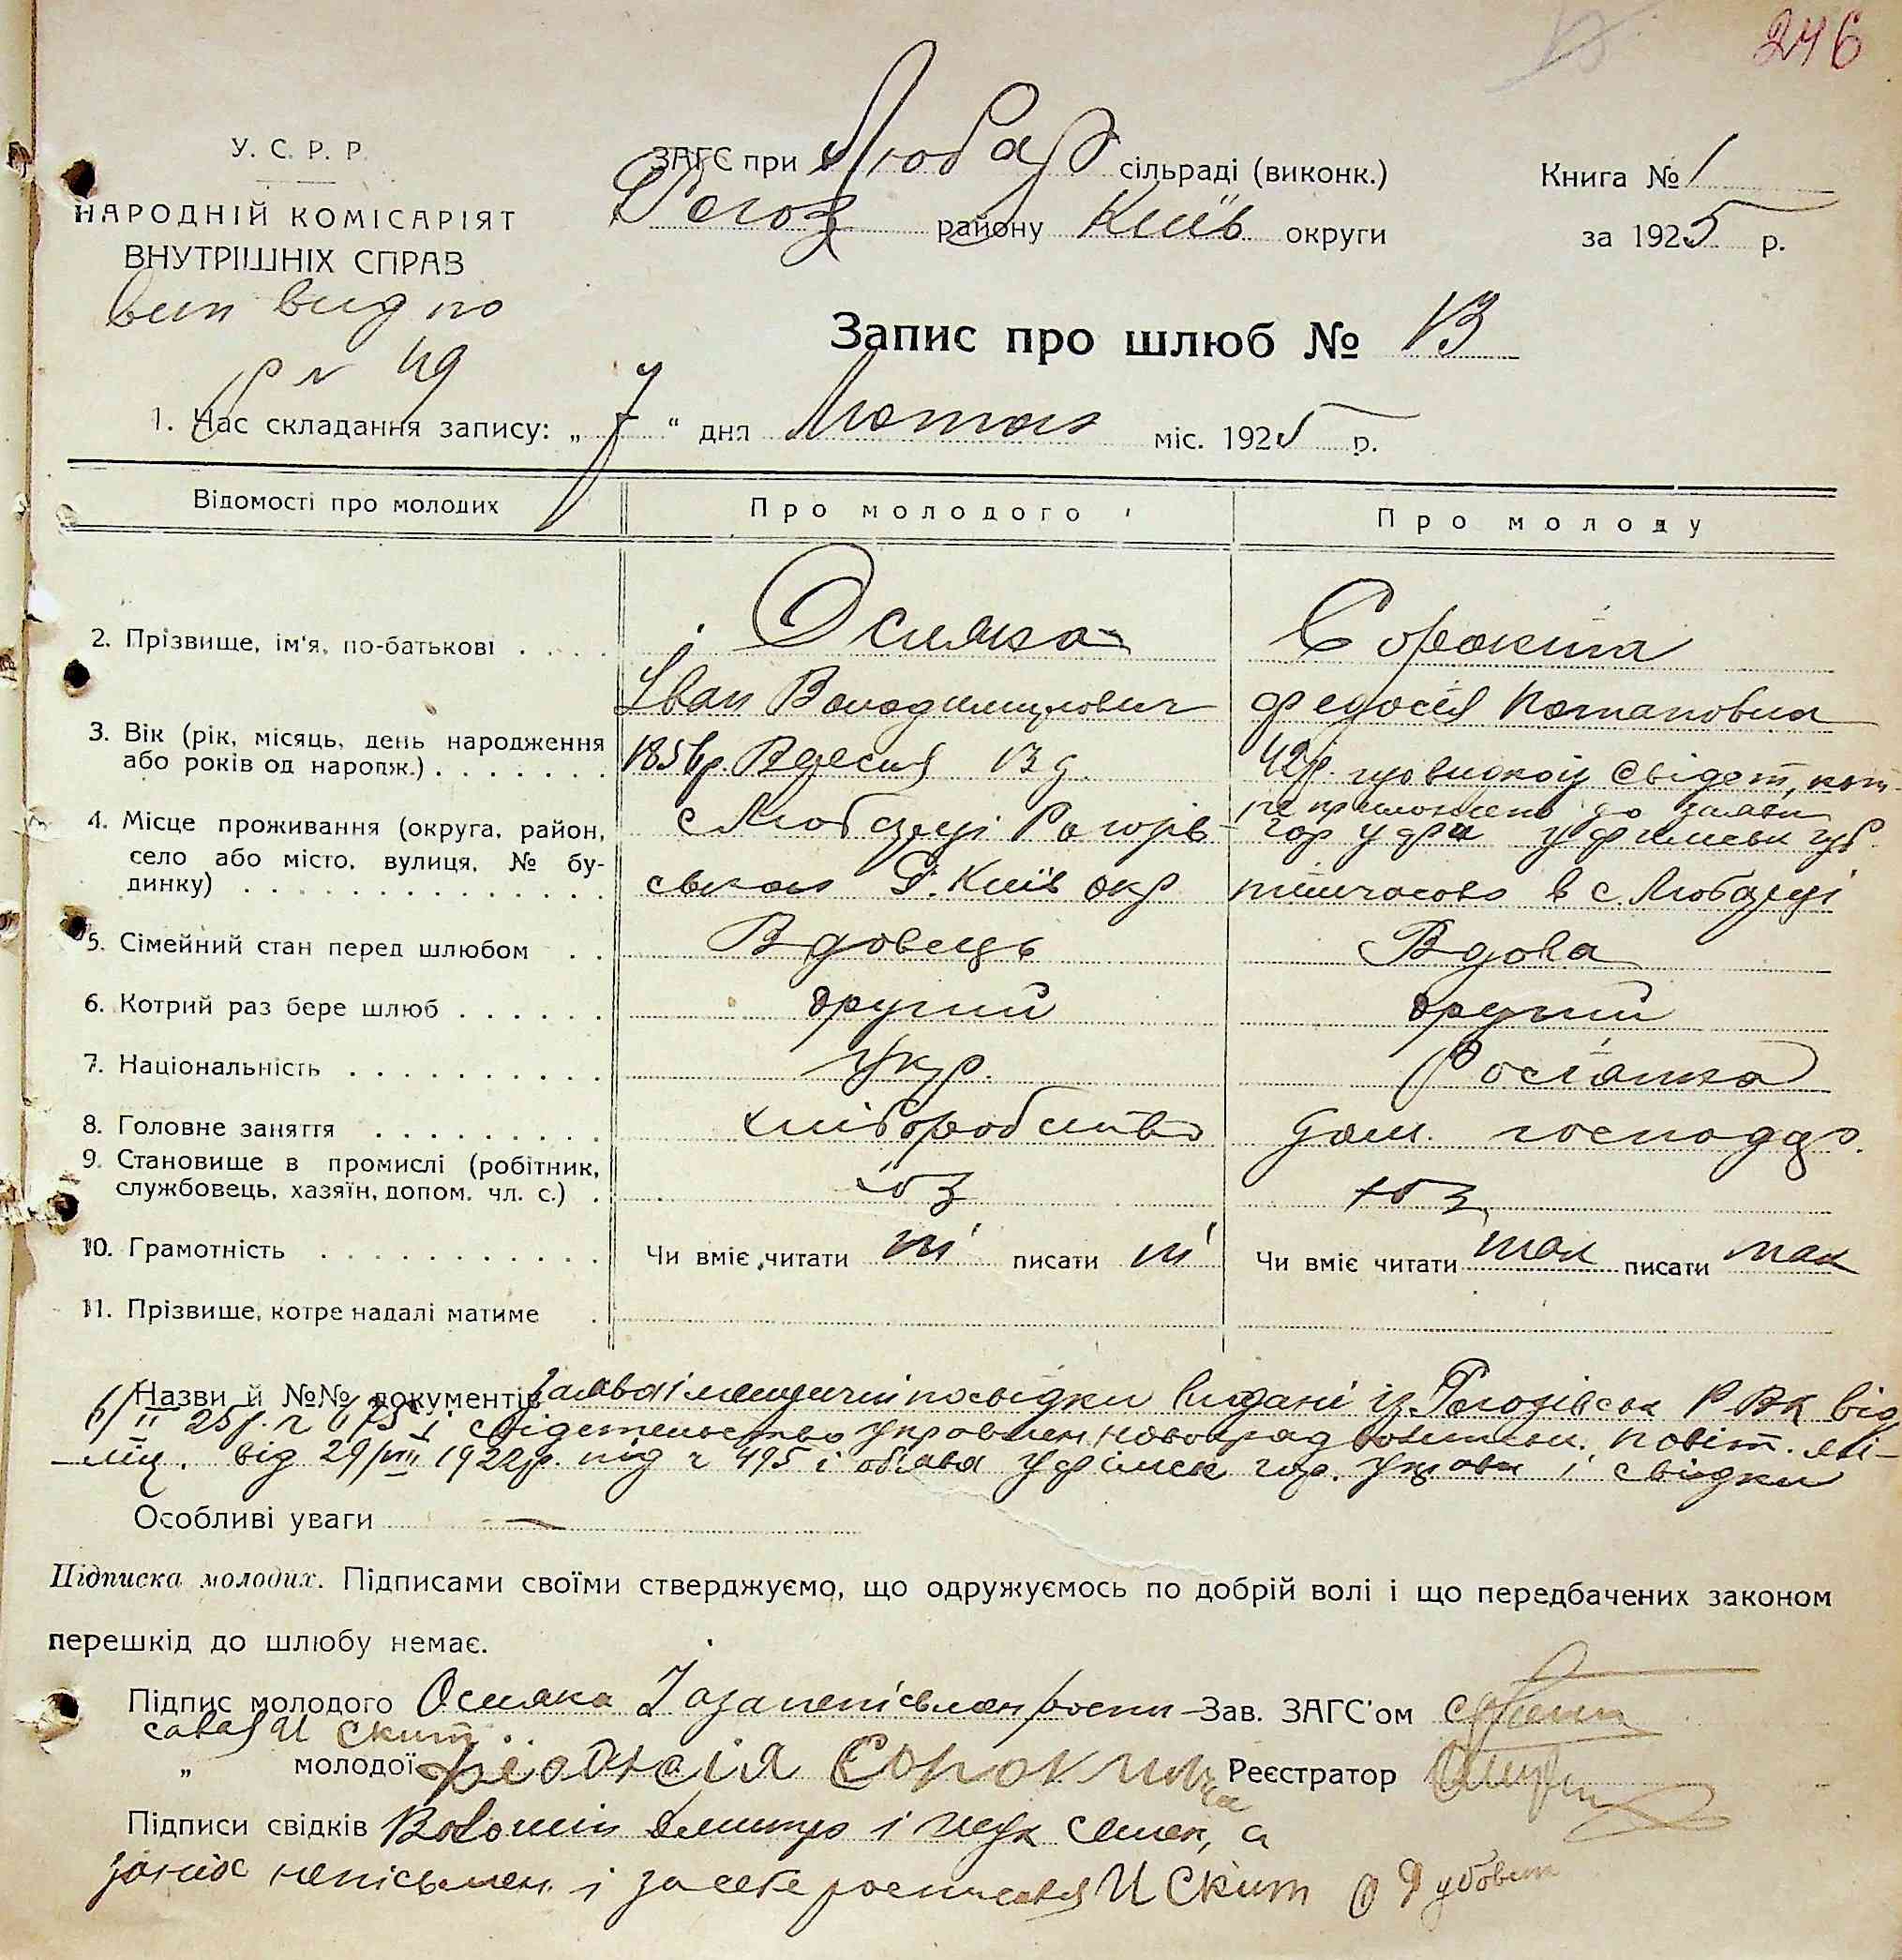 246
У. С. Р. Р.
НАРОДНІЙ КОМІСАРІЯТ
ВНУТРІШНІХ СПРАВ
ЗАГС при Любар сільраді (виконк.)
Рогоз району Київ округи
Книга № 1
за 1925 р.
вип видно
49
Запис про шлюб № 13
1. Час складання запису: „ 7 “ дня Лютого міс. 1925 р.
Відомості про молодих
Про молодого
Про молоду
2. Прізвище, ім'я, по-батькові
Осмяка
Іван Володимирович
Сорокіна
Федосія Потаповна
3. Вік (рік, місяць, день народження
або років од народж.)
1856р. Вдесня 13 д.
42р. свідет, кот
приложено до заяви
4. Місце проживання (округа, район,
село або місто, вулиця, № бу-
динку)
с Любарці Рогорів-
ськом Р. Київ окр
гор Уфа Уфимськ губ.
тимчасово в с. Любарці
5. Сімейний стан перед шлюбом
Вдовець
Вдова
6. Котрий раз бере шлюб
другий
другий
7. Національність
Укр.
Росіянка
8. Головне заняття
хліборобство
дом. господар.
9. Становище в промислі (робітник,
службовець, хазяїн, допом. чл. с.)
10. Грамотність
Чи вміє читати ні писати ні
Чи вміє читати так писати так
11. Прізвище, котре надалі матиме
Назви й №№ документів заява і посвідки видані із Рогозівськ РВК від
6/II 25р. № 675 і свідетельство повіт. мі-
-ліц. від 29/VIII 1922р. під № 495 і Уфімск гор. і свідки
Особливі уваги —
Підписка молодих. Підписами своїми стверджуємо, що одружуємось по добрій волі і що передбачених законом
перешкід до шлюбу немає.
Підпис молодого Осмяка І а за непісьмен роспи-
савсь И Скит
Зав. ЗАГС'ом
„ молодої Феодосія Сорокина
Реєстратор
Підписи свідків Дмитро і Семен, а
за них непісьмен. і за себе росписався И Скит